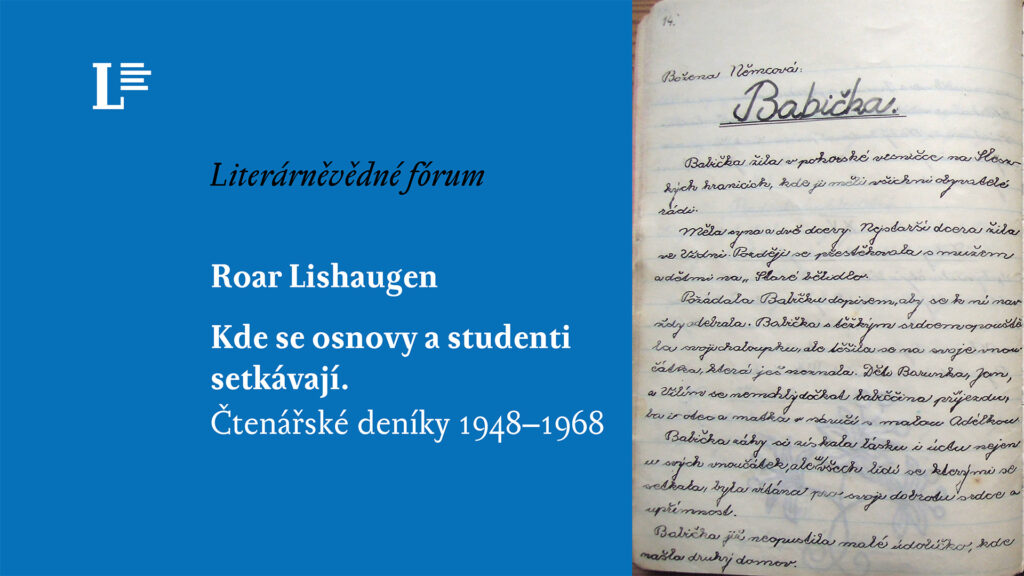 L
Literárněvědné fórum
Roar Lishaugen
Kde se osnovy a studenti
setkávají.
Čtenářské deníky 1948–1968
14.
Božena Němcová:
Babička.
Babička žila v pohorské vesničce na Slez-
kých hranicích, kde ji měli všichni obyvatelé
rádi.
Měla syna a dvě dcery. Nejstarší dcera žila
ve Vídni. Později se přestěhovala s mužem
a dětmi na „Staré bělidlo.
Požádala Babičku dopisem, aby se k ní nav-
ždy odebrala. Babička s těžkým srdcem opouště-
la svoji chaloupku, ale těšila se na svoje vnou-
čátka, která ješ neznala. Děti Barunka, Jan,
a Vilím se nemohly dočkat babiččina příjezdu,
ba i otec a matka v náručí s malou Adélkou
Babička záhy si získala lásku i úctu nejen
u svých vnoučátek, ale u všech lidí se kterými se
setkala, byla vítána pro svoji dobrotu srdce a
upřímnost.
Babička již neopustila malé údolíčko, kde
našla druhý domov.